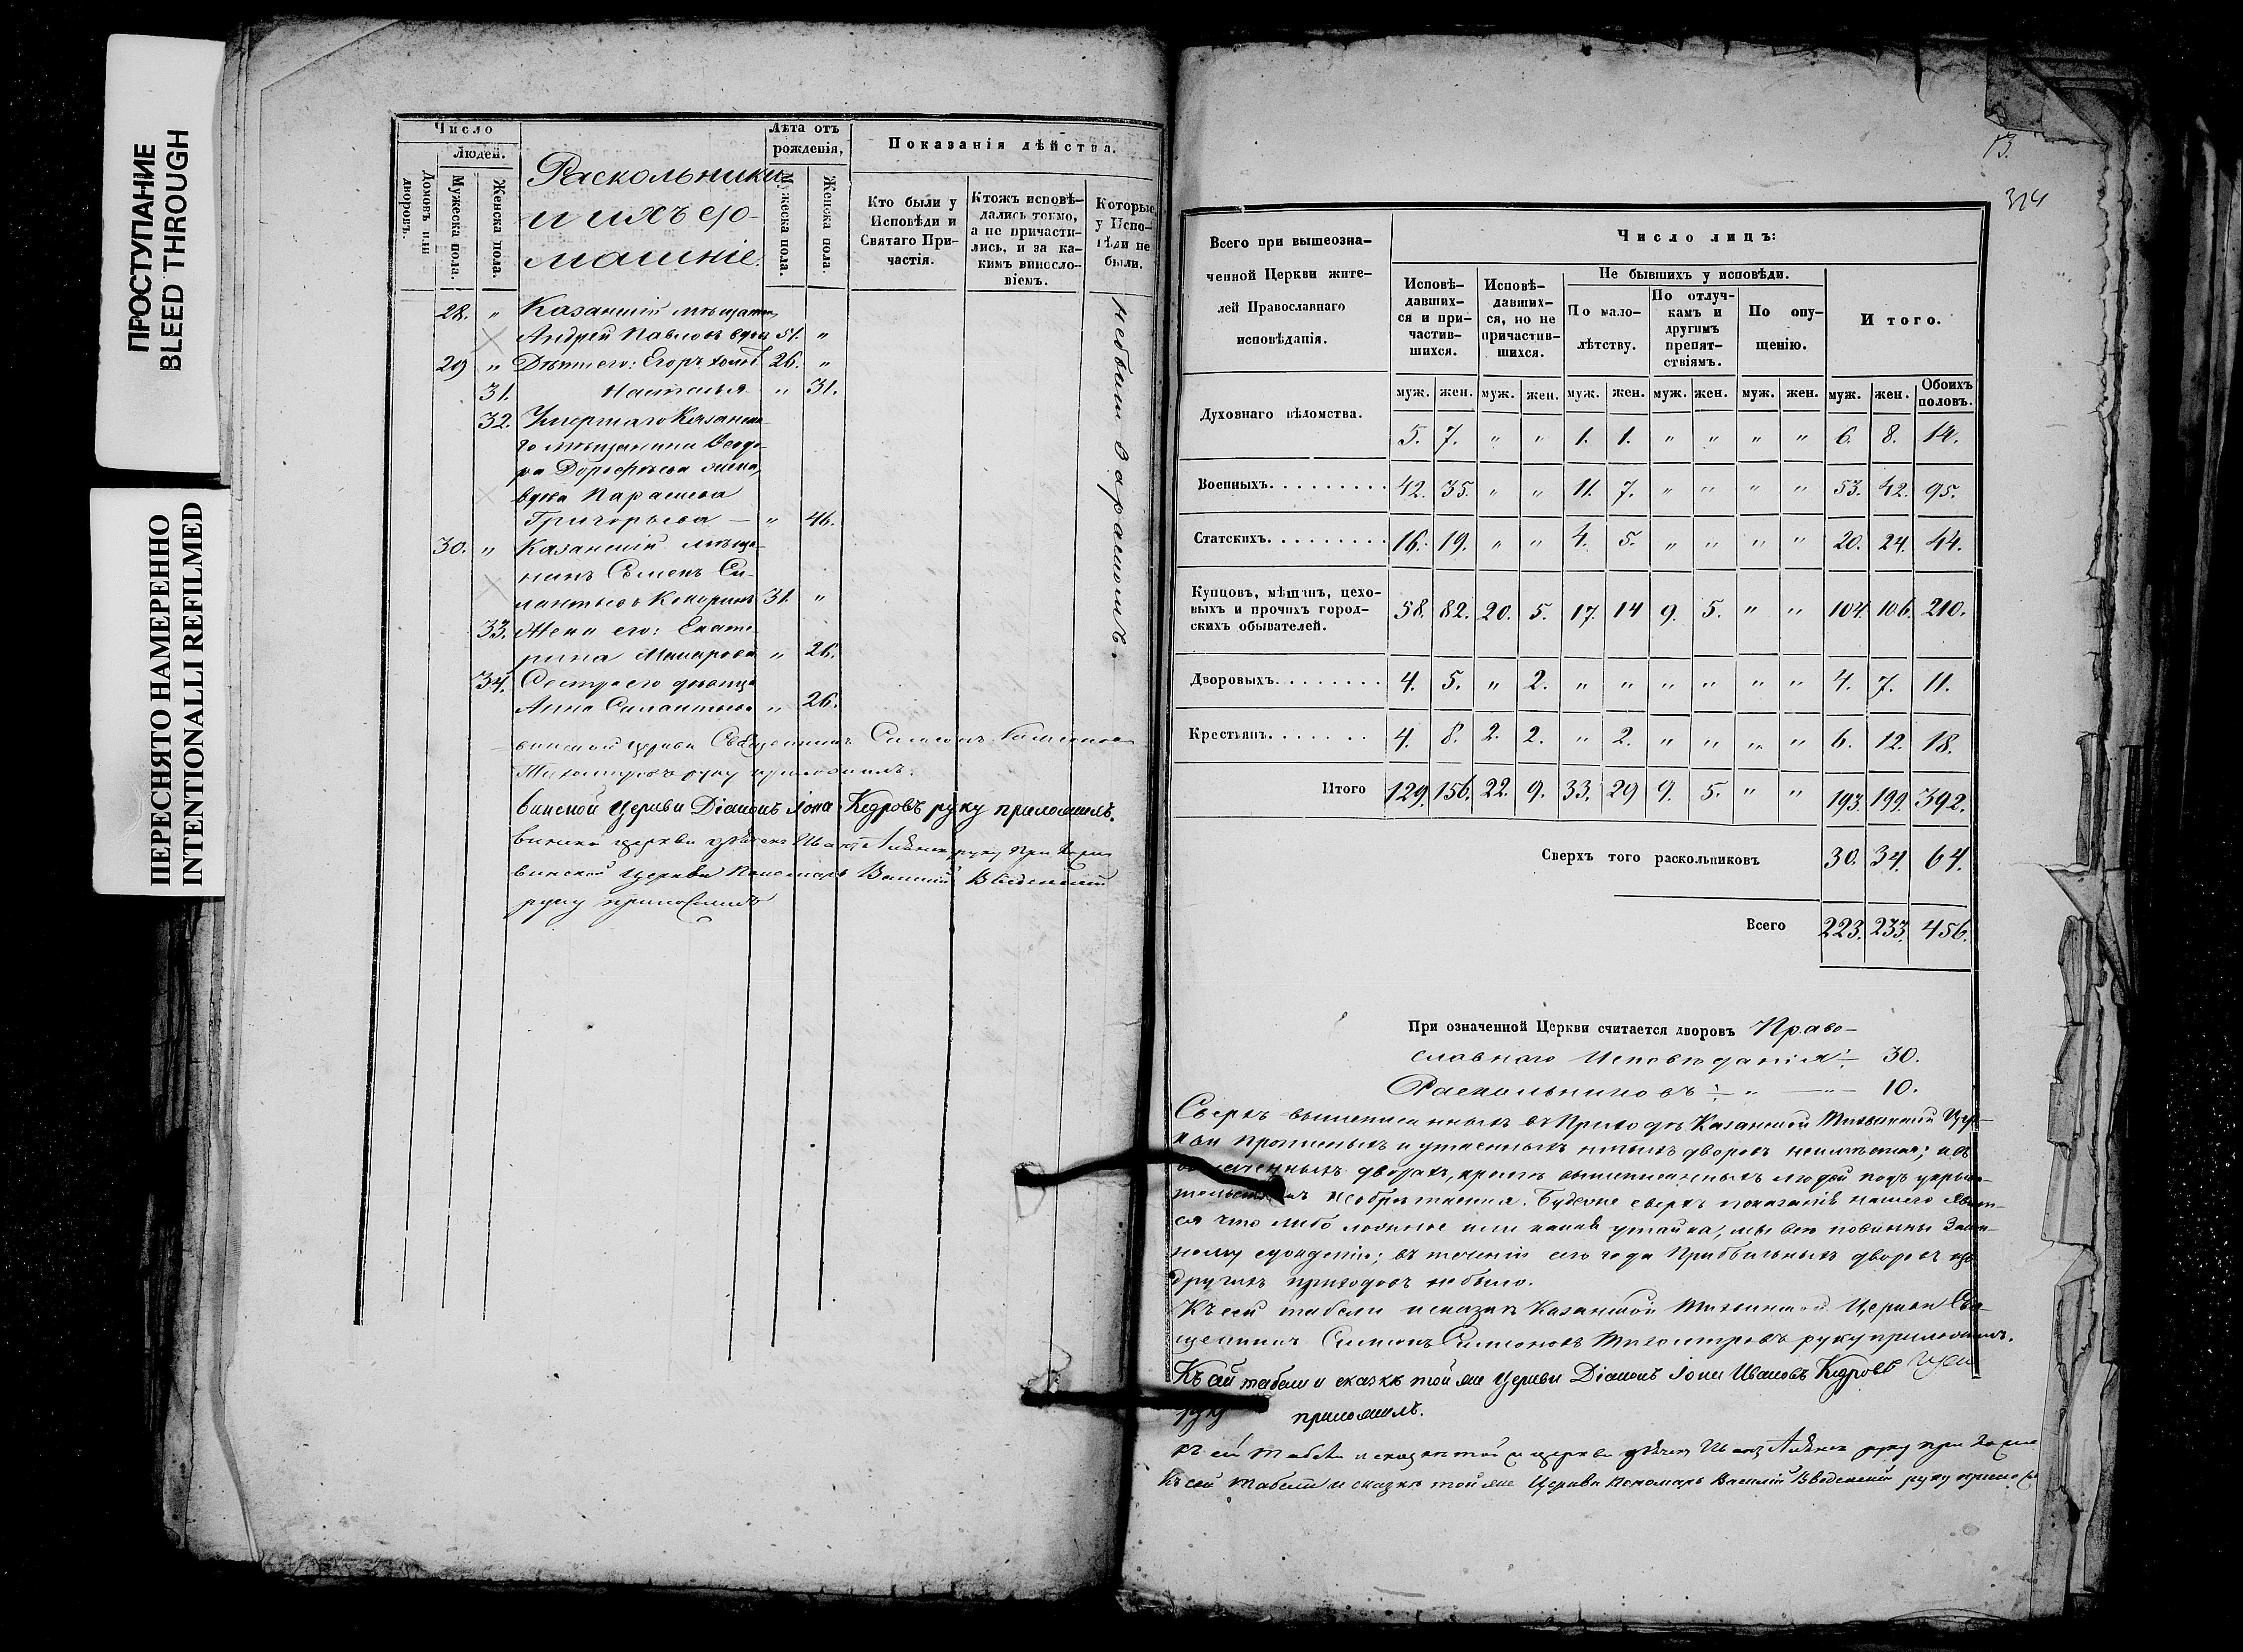 ПРОСТУПАНИЕ
BLEED THROUGH
ПЕРЕСНЯТО НАМЕРЕННО
INTENTIONALLI REFILMED
Число
Людей.
Домовъ или дворовъ.
Мужеска пола.
Женска пола.
Раскольники
и ихъ до-
машніе.
Лѣта отъ
рожденія,
Мужеска пола.
Женска пола.
Показанія дѣйства.
Кто были у
Исповѣди и
Святаго При-
частія.
Ктожъ исповѣ-
дались токмо,
а не причасти-
лись, и за ка-
кимъ виносло-
віемъ.
Которые
у Испо-
вѣди не
были.
28. " Казанскій мѣщанинъ
Андрей Павловъ вдовъ 51. "
29 " Дѣти его: Егоръ холост. 26. "
31. Наталья " 31.
32. Умершаго Казанска-
го мѣщанина Ѳеодо-
ра Дорофѣева жена,
вдова Парасковья
Григорьева — " 46.
30. " Казанскій мѣща-
нинъ Семенъ Си-
лантьевъ 31. "
33. Жена его: Екате-
рина Макарова " 26.
34. Сестра его дѣвица
Анна Силантьева " 26.
Небыли за расколомъ.
винской Церкви Священникъ Симеонъ Симеоновъ
Тихомировъ руку приложилъ.
винской Церкви Діаконъ Іона Кедровъ руку приложилъ.
винской церкви дьячекъ Иванъ руку приложилъ
винской Церкви Пономарь Василій Введенскій
руку приложилъ
13.
314
Всего при вышеозна-
ченной Церкви жите-
лей Православнаго
исповѣданія.
Число лицъ:
Исповѣ-
давших-
ся и при-
частив-
шихся.
Исповѣ-
давших-
ся, но не
причастив-
шихся.
Не бывшихъ у исповѣди.
По мало-
лѣтству.
По отлуч-
камъ и
другимъ
препят-
ствіямъ.
По опу-
щенію.
Итого.
муж. жен. муж. жен. муж. жен. муж. жен. муж. жен. муж. жен. Обоихъ половъ.
Духовнаго вѣдомства. 5. 7. " " 1. 1. " " " " 6. 8. 14.
Военныхъ......... 42. 35. " " 11. 7. " " " " 53. 42. 95.
Статскихъ......... 16. 19. " " 4. 5. " " " " 20. 24. 44.
Купцовъ, мѣщанъ, цехо-
выхъ и прочихъ город-
скихъ обывателей. 58. 82. 20. 5. 17. 14 9. 5. " " 104. 106. 210.
Дворовыхъ........ 4. 5. " 2. " " " " " " 4. 7. 11.
Крестьянъ....... 4. 8. 2. 2. " 2. " " " " 6. 12. 18.
Итого 129. 156. 22. 9. 33. 29 9. 5. " " 193. 199. 392.
Сверхъ того раскольниковъ 30. 34. 64.
Всего 223. 233. 456.
При означенной Церкви считается дворовъ Право-
славнаго Исповѣданія — 30.
Раскольниковъ — " — 10.
Сверхъ вышеписанныхъ въ Приходѣ Казанской Тихвинской Цер-
кви прописныхъ и утаенныхъ никакихъ дворовъ неимѣется; а въ
означенныхъ дворахъ, кромѣ вышеписанныхъ людей подъ укрыва-
тельствомъ необрѣтается. Буде же сверхъ показанія нашего явит-
ся что либо ложное или какая утайка, мы всѣ повинны Закон-
ному сужденію; въ теченіи сего года Прибыльныхъ дворовъ изъ
другихъ приходовъ небыло.
Къ сей табели и сказкѣ Казанской Тихвинской Церкви Свя-
щенникъ Симеонъ Симеоновъ Тихомировъ руку приложилъ.
Къ сей табели и сказкѣ той же Церкви Діаконъ Іона Ивановъ Кедровъ
руку приложилъ.
къ сей табели и сказкѣ той же церкви дьячекъ Иванъ руку приложилъ
Къ сей табели и сказкѣ той же Церкви Пономарь Василій Введенскій руку приложилъ